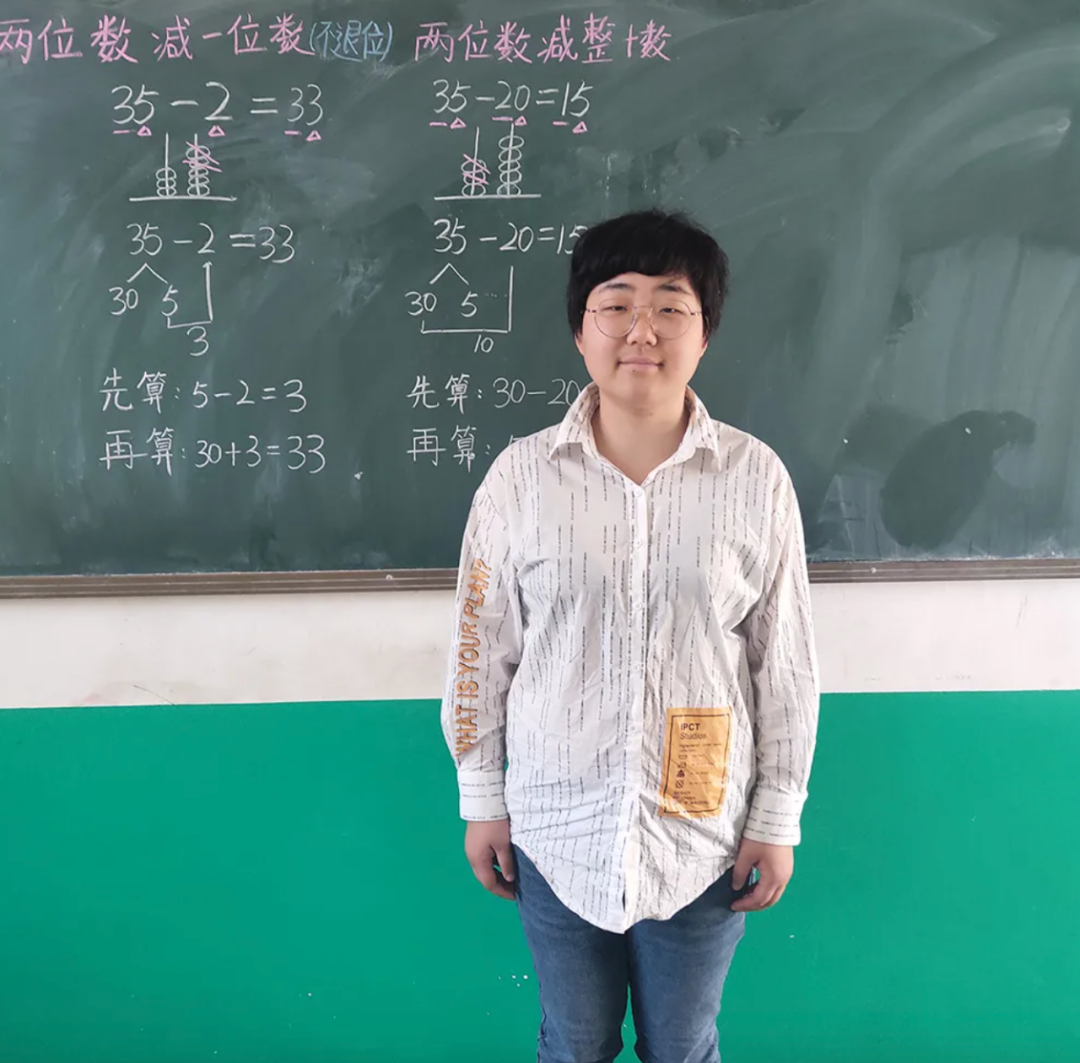 两位数减一位数(不退位) 两位数减整十数
35-2=33
35-20=15
35-2=33
30 5
3
先算:5-2=3
再算:30+3=33
35-20=15
30 5
10
先算:30-20
再算:
WHAT IS YOUR PLAN?
IPCT
Studios